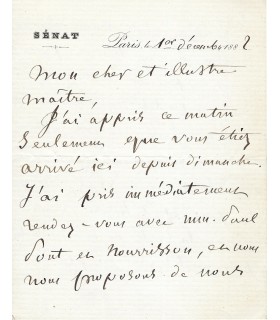 SÉNAT
Paris le 1er décembre 1882
Mon cher et illustre
maître,
J'ai appris ce matin
seulement que vous étiez
arrivé ici depuis dimanche.
J'ai pris immédiatement
rendez-vous avec mm. Paul
Dont et Nourrisson, et nous
nous proposons de nous